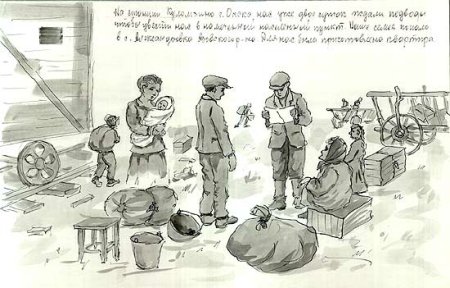 На станции Куломзино г. Омска, нам уже двое суток подали подводы
чтобы увезти нас в назначенный населённый пункт. Наша семья попала
в с. Александровка Азовского р-на Для нас была приготовлена квартира